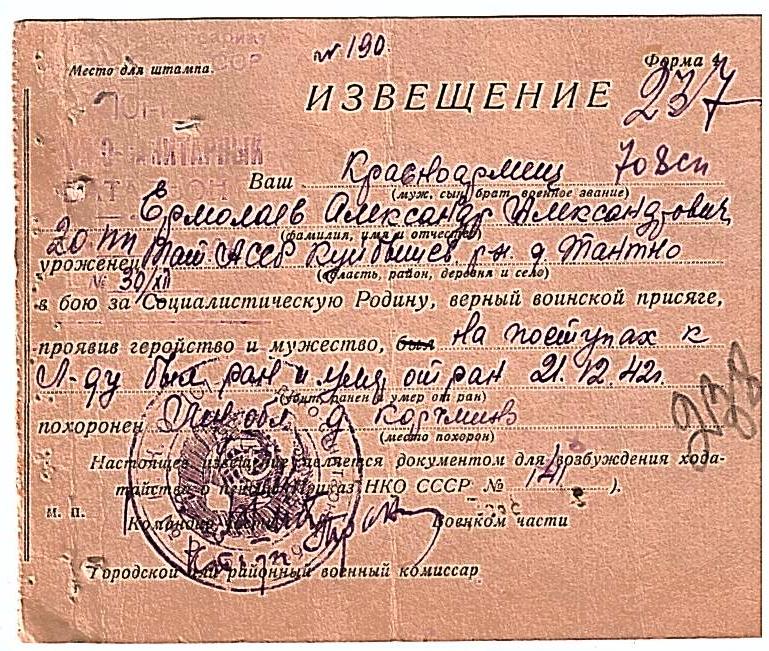 № 190
Место для штампа.
Форма 4
23/7
ИЗВЕЩЕНИЕ
Ваш Красноармеец 708 сп
(муж, сын, брат, военное звание)
Ермолаев Александр Александрович
(фамилия, имя и отчество)
уроженец Тат АССР Куйбышев р-н. д
(область, район, деревня и село)
№ 30/XII
в бою за Социалистическую Родину, верный воинской присяге,
проявив геройство и мужество, был на поступах к
Л-ду был ран и умер от ран 21.12.42г.
(убит, ранен и умер от ран)
похоронен Лен обл. д
(место похорон)
238
Настоящее извещение является документом для возбуждения хода-
тайства о пенсии (Приказ НКО СССР № 141).
м. п.
Командир части
Военком части
Городской или районный военный комиссар